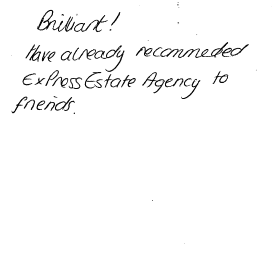 Brilliant!
Have already recommeded
ExPress Estate Agency to
friends.